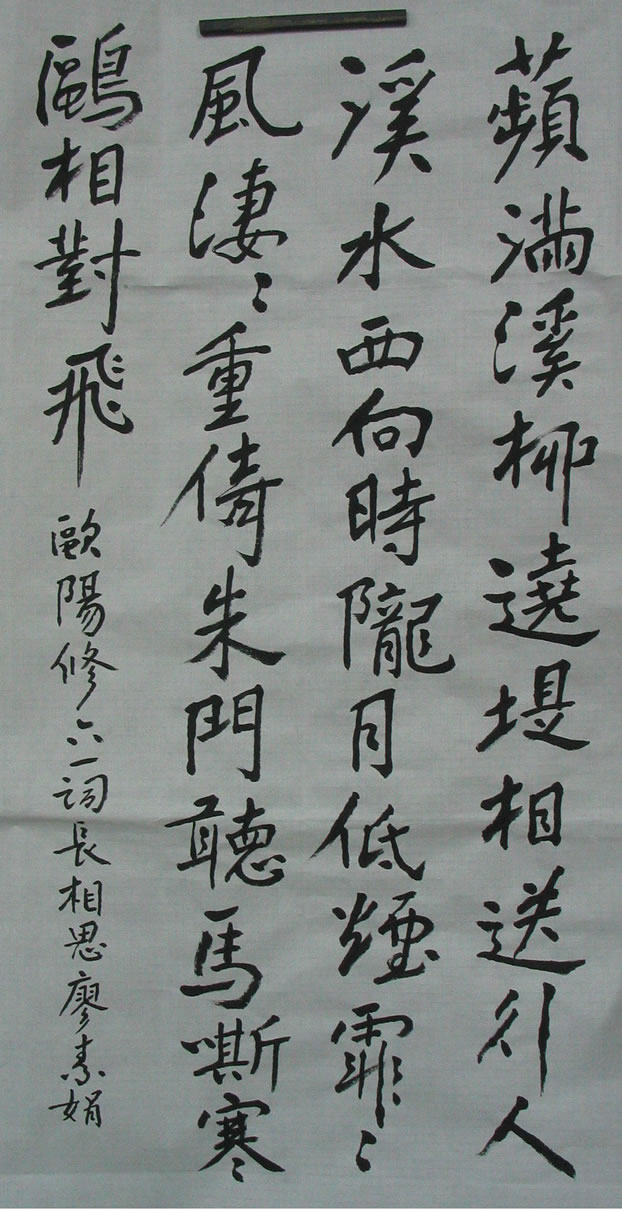 蘋滿溪柳遶堤相送行人
溪水西向時隴月低煙霏〻
風淒〻重倚朱門聽馬嘶寒
鷗相對飛 歐陽修六一詞長相思廖素娟